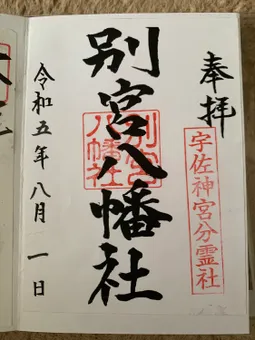 奉拝
宇佐神宮分霊社
別宮八幡社
別宮八幡社
令和五年八月一日